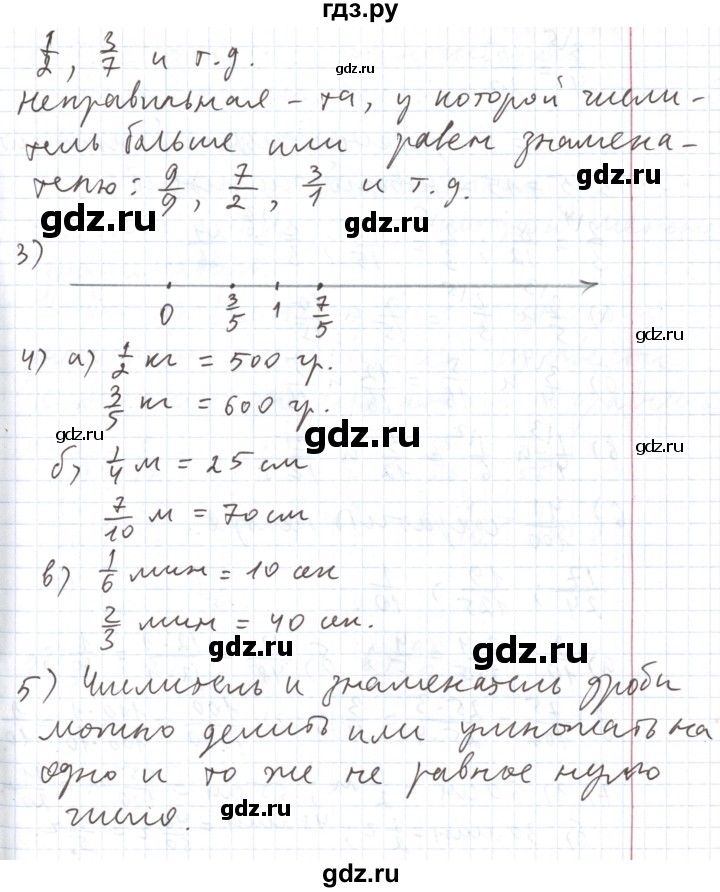 гдз.ру
1/2, 3/7 и т.д.
gdz.ru
неправильная – та, у которой числи-
тель больше или равен знамена-
телю: 9/9, 7/2, 3/1 и т.д.
gdz.ru
gdz.ru gdz.ru
3)
0 3/5 1 7/5
gdz.ru
4) а) 1/2 кг = 500 гр.
3/5 кг = 600 гр.
gdz.ru gdz.ru
gdz.ru
б) 1/4 м = 25 см
7/10 м = 70 см
gdz.ru
в) 1/6 мин = 10 сек
2/3 мин = 40 сек.
gdz.ru gdz.ru
5) Числитель и знаменатель дроби
можно делить или умножать на
одно и то же не равное нулю
число.
gdz.ru
gdz.ru
gdz.ru